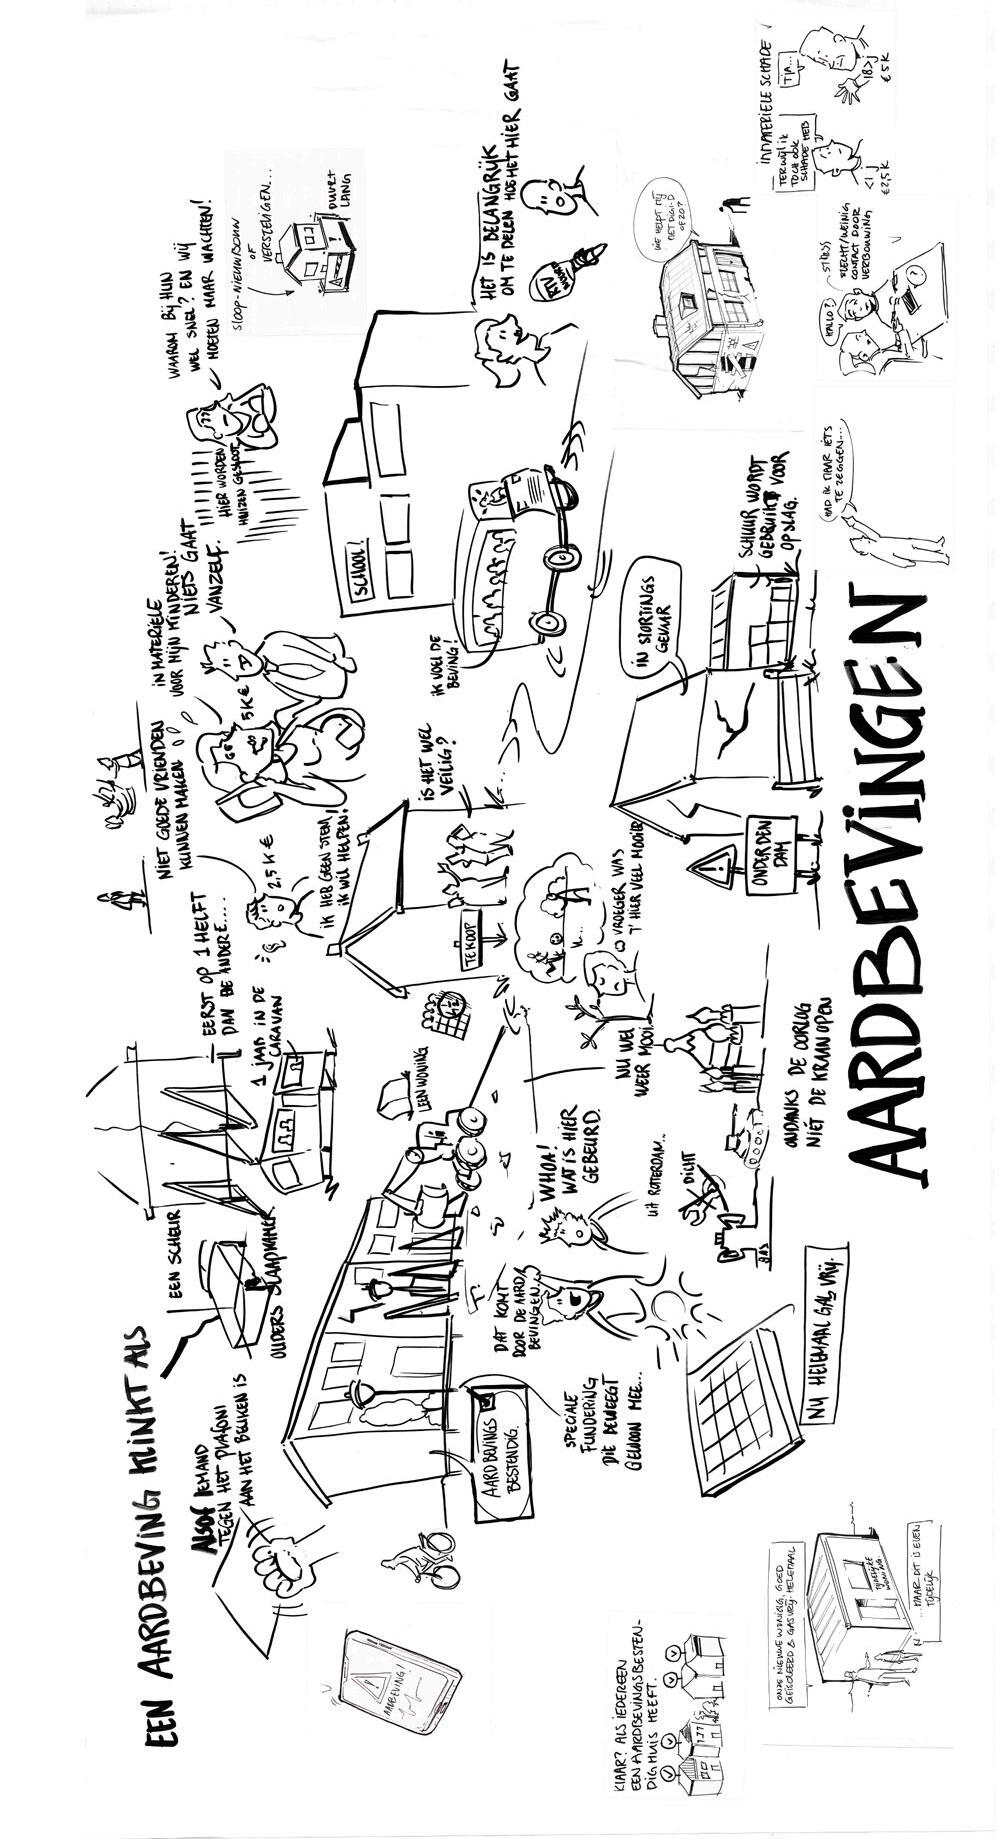 EEN AARDBEVING KLINKT ALS
ALSOF IEMAND
TEGEN HET PLAFOND
AAN HET BEUKEN IS
EEN SCHEUR
OUDERS SLAAPKAMER
EERST OP 1 HELFT
DAN DE ANDERE....
1 JAAR IN DE
CARAVAN
NIET GOEDE VRIENDEN
KUNNEN MAKEN
2,5 K €
IK HEB GEEN STEM,
IK WIL HELPEN!
5K €
IN MATERIELE
VOOR MIJN KINDEREN!
NIETS GAAT
VANZELF.
HIER WORDEN
HUIZEN GESLOOPT
WAAROM BIJ HUN
WEL SNEL? EN WIJ
MOETEN MAAR WACHTEN!
SLOOP-NIEUWBOUW
OF
VERSTEVIGEN...
DUURT
LANG
AARDBEVING!
AARDBEVINGS
BESTENDIG.
SPECIALE
FUNDERING
DIE BEWEEGT
GEWOON MEE...
DAT KOMT
DOOR DE AARD
BEVINGEN
WHOA!
WAT IS HIER
GEBEURD.
UIT ROTTERDAM..
LEEN WONING
TE KOOP
IS HET WEL
VEILIG?
IK VOEL DE
BEVING!
SCHOOL!
HET IS BELANGRIJK
OM TE DELEN HOE HET HIER GAAT
RTV
NOORD
NU WEL
WEER MOOI...
VROEGER WAS
'T HIER VEEL MOOIER
IN STORTINGS
GEVAAR
ONDERDEN
DAM
SCHUUR WORDT
GEBRUIKT VOOR
OPSLAG.
WIE HELPT MIJ
MET DIGI-D
OF ZO?
KLAAR? ALS IEDEREEN
EEN AARDBEVINGSBESTEN-
DIG HUIS HEEFT.
NU HELEMAAL GAS VRIJ.
DICHT
GAS
ONDANKS DE OORLOG
NIET DE KRAAN OPEN
ONZE NIEUWE WONING, GOED
GEISOLEERD & GASVRIJ. HELEMAAL
TIJDELIJKE
WONING
...MAAR DIT IS EVEN
TIJDELIJK
AARDBEVINGEN
HAD IK MAAR IETS
TE ZEGGEN...
HALLO?
- STRESS
- SLECHT/WEINIG
CONTACT DOOR
VERBOUWING
IMMATERIELE SCHADE
TERWIJL IK
TOCH OOK
SCHADE HEB
TJA...
<1 J
€ 2,5K
18>J
€ 5K